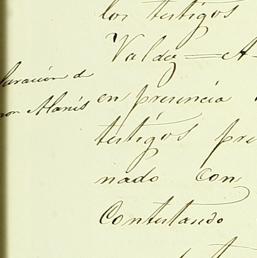 los testigos
Valdez = A
laracion d
non Alanis
en presencia
testigos pre
nado con
Contestando